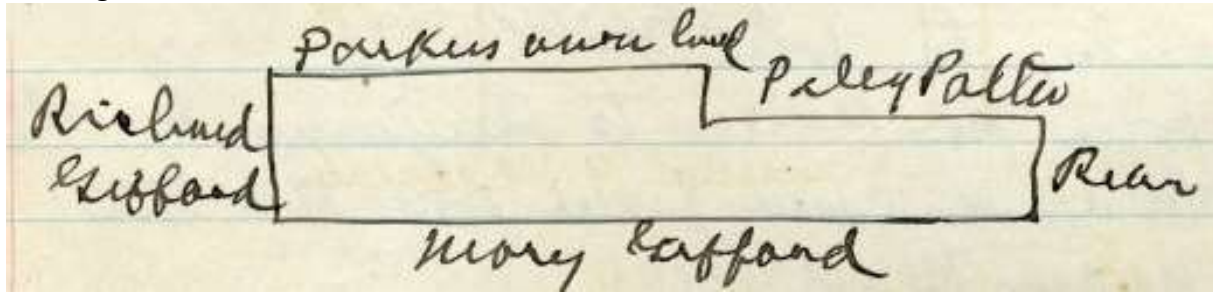 Parkers own land
Paley Potter
Richard
Gifford
Rear
Mary Gifford